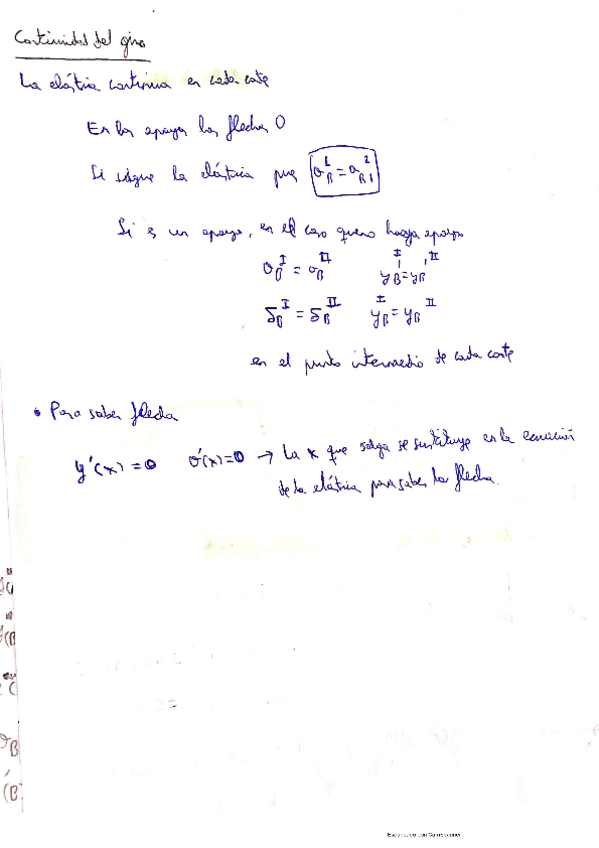 Continuidad del giro
La elástica continua en cada corte
En los apoyos la flecha 0
Si sigue la elástica pues θ_B^1 = θ_B^2
Si es un apoyo, en el caso que no haya apoyo
θ_B^I = θ_B^II y_B^I = y_B^II
δ_B^I = δ_B^II y_B^I = y_B^II
en el punto intermedio de cada corte
• Para saber flecha
y'(x) = 0 θ'(x) = 0 → La x que salga se sustituye en la ecuación
de la elástica para saber la flecha.
Escaneado con CamScanner